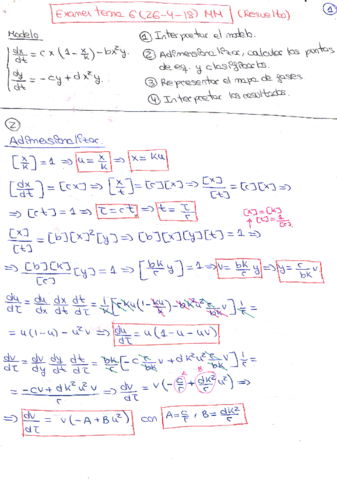 Examen tema 6 (26-4-18) MM (Resuelto)
①
Modelo
dx/dt = rx(1 - x/k) - bx²y
dy/dt = -cy + dx²y
① Interpretar el modelo.
② Adimensionalizar, calcular los puntos de eq. y clasificarlos.
③ Representar el mapa de fases
④ Interpretar los resultados.
②
Adimensionalizar
[x/k] = 1 ⇒ u = x/k ⇒ x = ku
[dx/dt] = [rx] ⇒ [x/t] = [r][x] ⇒ [x]/[t] = [r][x] ⇒
⇒ [rt] = 1 ⇒ τ = rt ⇒ t = τ/r
[x]/[t] = [b][x]²[y] ⇒ [b][x][y][t] = 1 ⇒
⇒ [b][k]/[r] [y] = 1 ⇒ [bk/r y] = 1 ⇒ v = bk/r y ⇒ y = r/bk v
du/dτ = du/dx dx/dt dt/dτ = 1/k [rku(1 - ku/k) - bk²u² r/bk v] 1/r =
= u(1-u) - u²v ⇒ du/dτ = u(1-u-uv)
dv/dτ = dv/dy dy/dt dt/dτ = bk/r [-c r/bk v + dk²u² r/bk v] 1/r =
= -cv + dk²u²v / r ⇒ dv/dτ = v(-c/r + dk²/r u²) ⇒
⇒ dv/dτ = v(-A + Bu²) con A = c/r, B = dk²/r